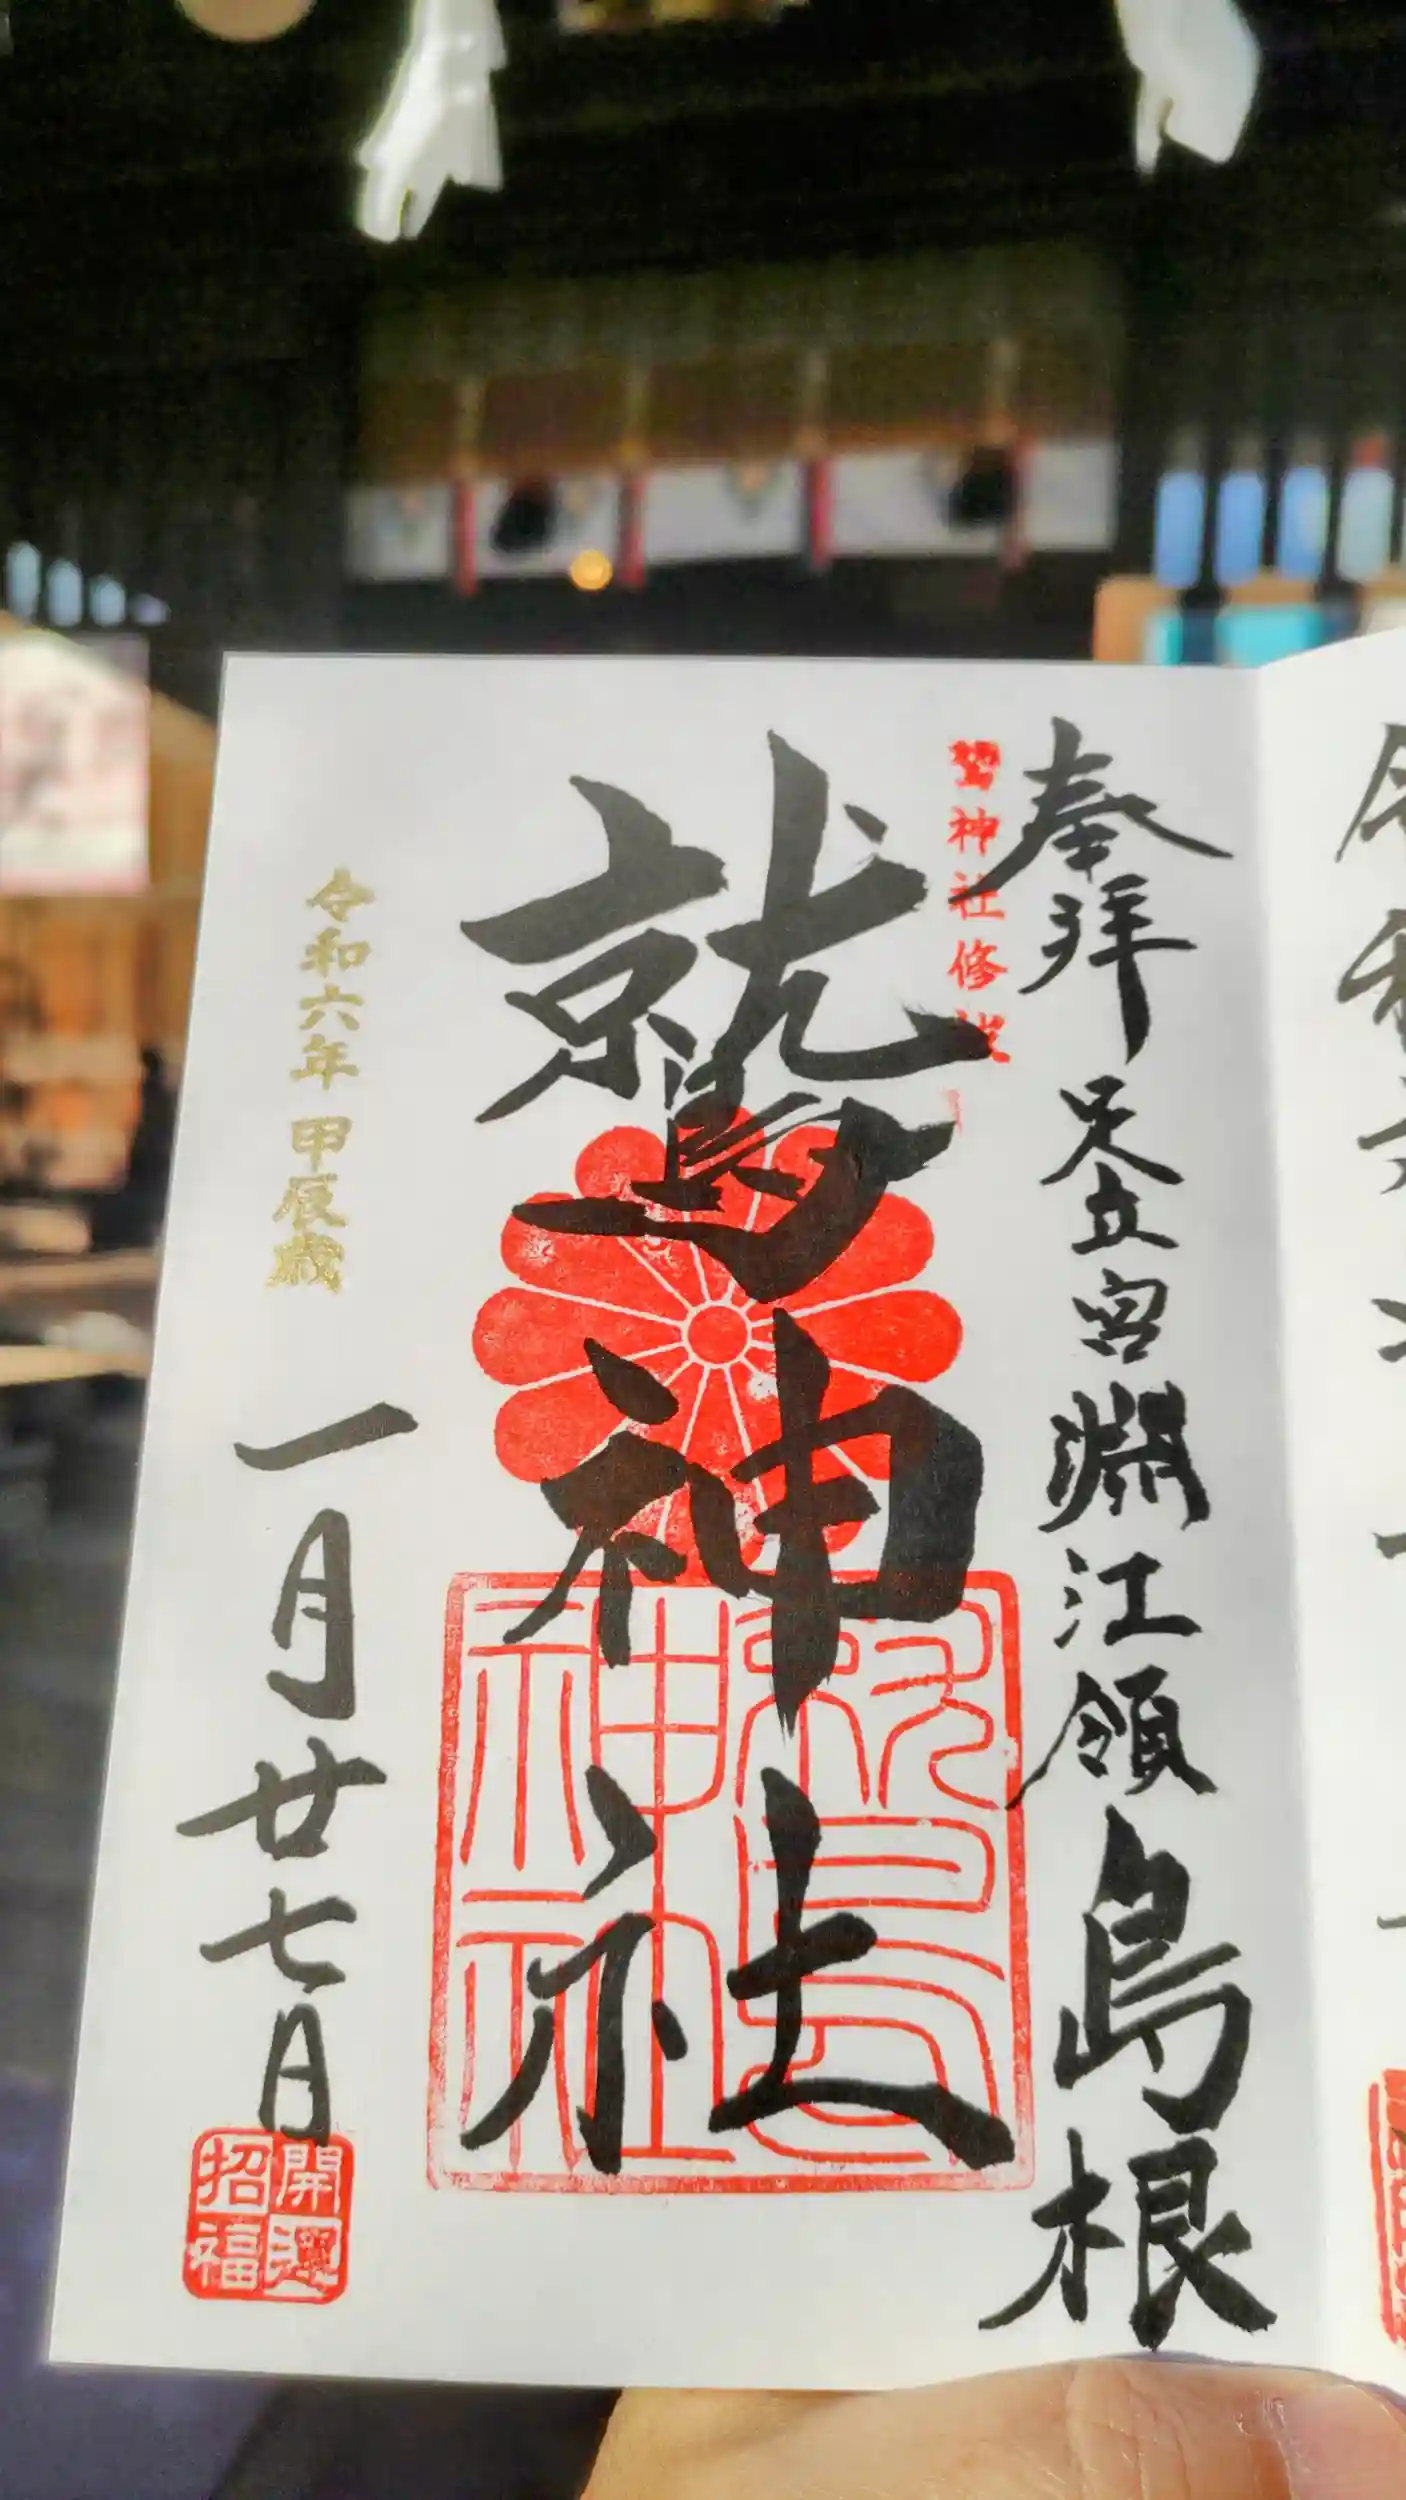 奉拝 足立宮淵江領島根
鷲神社修祓
鷲神社
令和六年 甲辰歳
一月廿七日
鷲神社
開運
招福
令和六